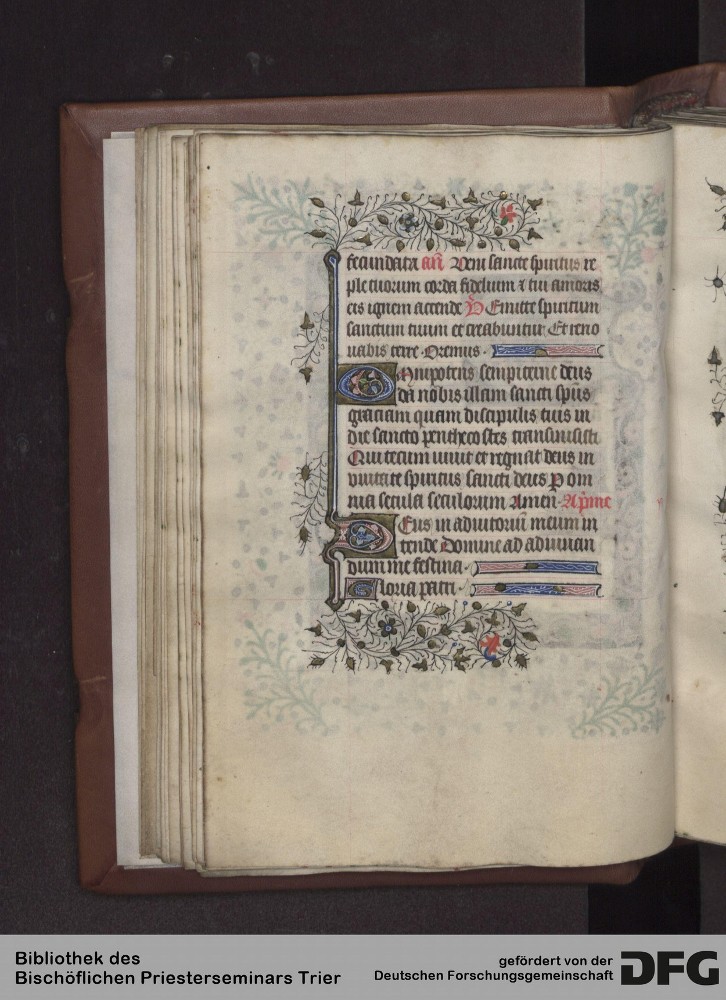 fecundata añ Veni sancte spiritus re
ple tuorum corda fidelium ⁊ tui amoris
eis ignem accende V Emitte spiritum
sanctum tuum et creabuntur Et reno
uabis terre Oremus
Omnipotens sempiterne deus
da nobis illam sancti spūs
graciam quam discipulis tuis in
die sancto penthecostes transmisisti
Qui tecum uiuit et regnat deus in
vnitate spiritus sancti deus P om
nia secula seculorum Amen A p̄me
Deus in adiutoriū meum in
tende Domine ad adiuuan
dum me festina
Gloria patri
Bibliothek des
Bischöflichen Priesterseminars Trier
gefördert von der
Deutschen Forschungsgemeinschaft
DFG